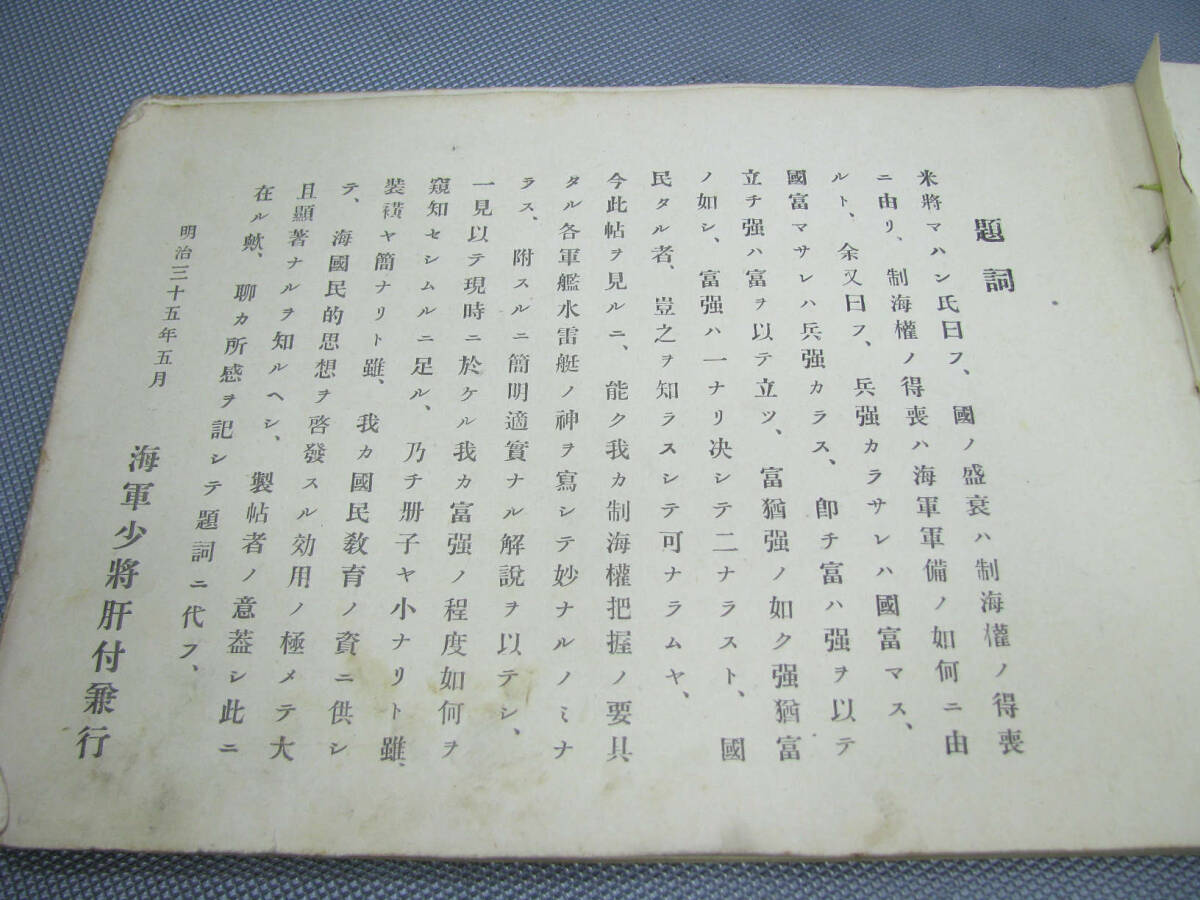 題詞
米將マハン氏曰フ、國ノ盛衰ハ制海權ノ得喪
ニ由リ、制海權ノ得喪ハ海軍軍備ノ如何ニ由
ルト、余又曰フ、兵强カラサレハ國富マス、
國富マサレハ兵强カラス、卽チ富ハ强ヲ以テ
立チ强ハ富ヲ以テ立ツ、富猶强ノ如ク强猶富
ノ如シ、富强ハ一ナリ決シテ二ナラスト、國
民タル者、豈之ヲ知ラスシテ可ナラムヤ、
今此帖ヲ見ルニ、能ク我カ制海權把握ノ要具
タル各軍艦水雷艇ノ神ヲ寫シテ妙ナルノミナ
ラス、附スルニ簡明適實ナル解說ヲ以テシ、
一見以テ現時ニ於ケル我カ富强ノ程度如何ヲ
窺知セシムルニ足ル、乃チ册子ヤ小ナリト雖、
裝潢ヤ簡ナリト雖、我カ國民敎育ノ資ニ供シ
テ、海國民的思想ヲ啓發スル効用ノ極メテ大
且顯著ナルヲ知ルヘシ、製帖者ノ意蓋シ此ニ
在ル歟、聊カ所感ヲ記シテ題詞ニ代フ、
明治三十五年五月
海軍少將肝付兼行